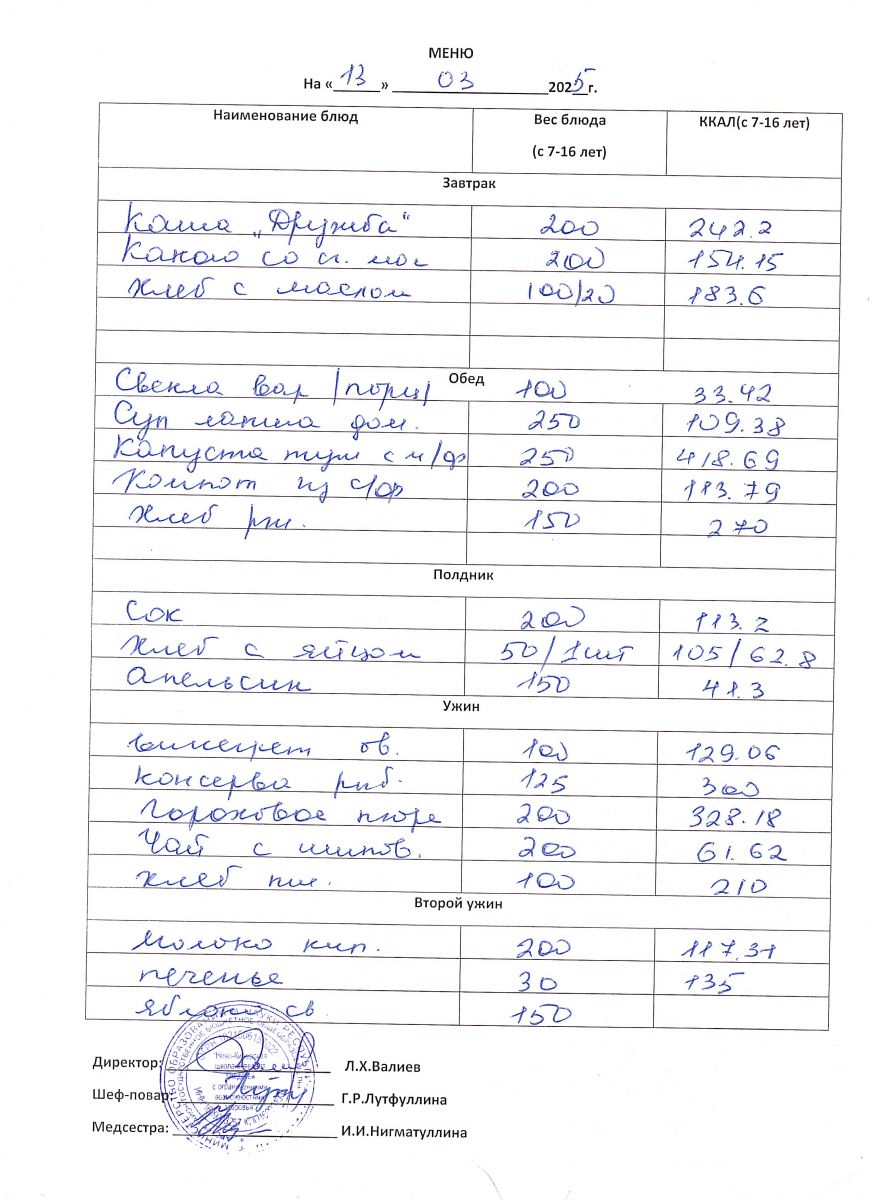 МЕНЮ
На « 13 » 03 2025 г.
Наименование блюд Вес блюда (с 7-16 лет) ККАЛ(с 7-16 лет)
Завтрак
Каша „Дружба" 200 242.2
Какао со сг. мол 200 154.15
Хлеб с маслом 100/20 183.6
Обед
Свекла вар /порц/ 100 33.42
Суп лапша дом. 250 109.38
Капуста туш с м/ф 250 418.69
Компот из с/фр 200 113.79
Хлеб рж. 150 270
Полдник
Сок 200 113.2
Хлеб с яйцом 50/1шт 105/62.8
Апельсин 150 41.3
Ужин
винегрет ов. 100 129.06
консерва рыб. 125 300
Гороховое пюре 200 328.18
Чай с шипов. 200 61.62
Хлеб пш. 100 210
Второй ужин
Молоко кип. 200 117.31
печенье 30 135
яблоки св. 150
Директор: Л.Х.Валиев
Шеф-повар: Г.Р.Лутфуллина
Медсестра: И.И.Нигматуллина